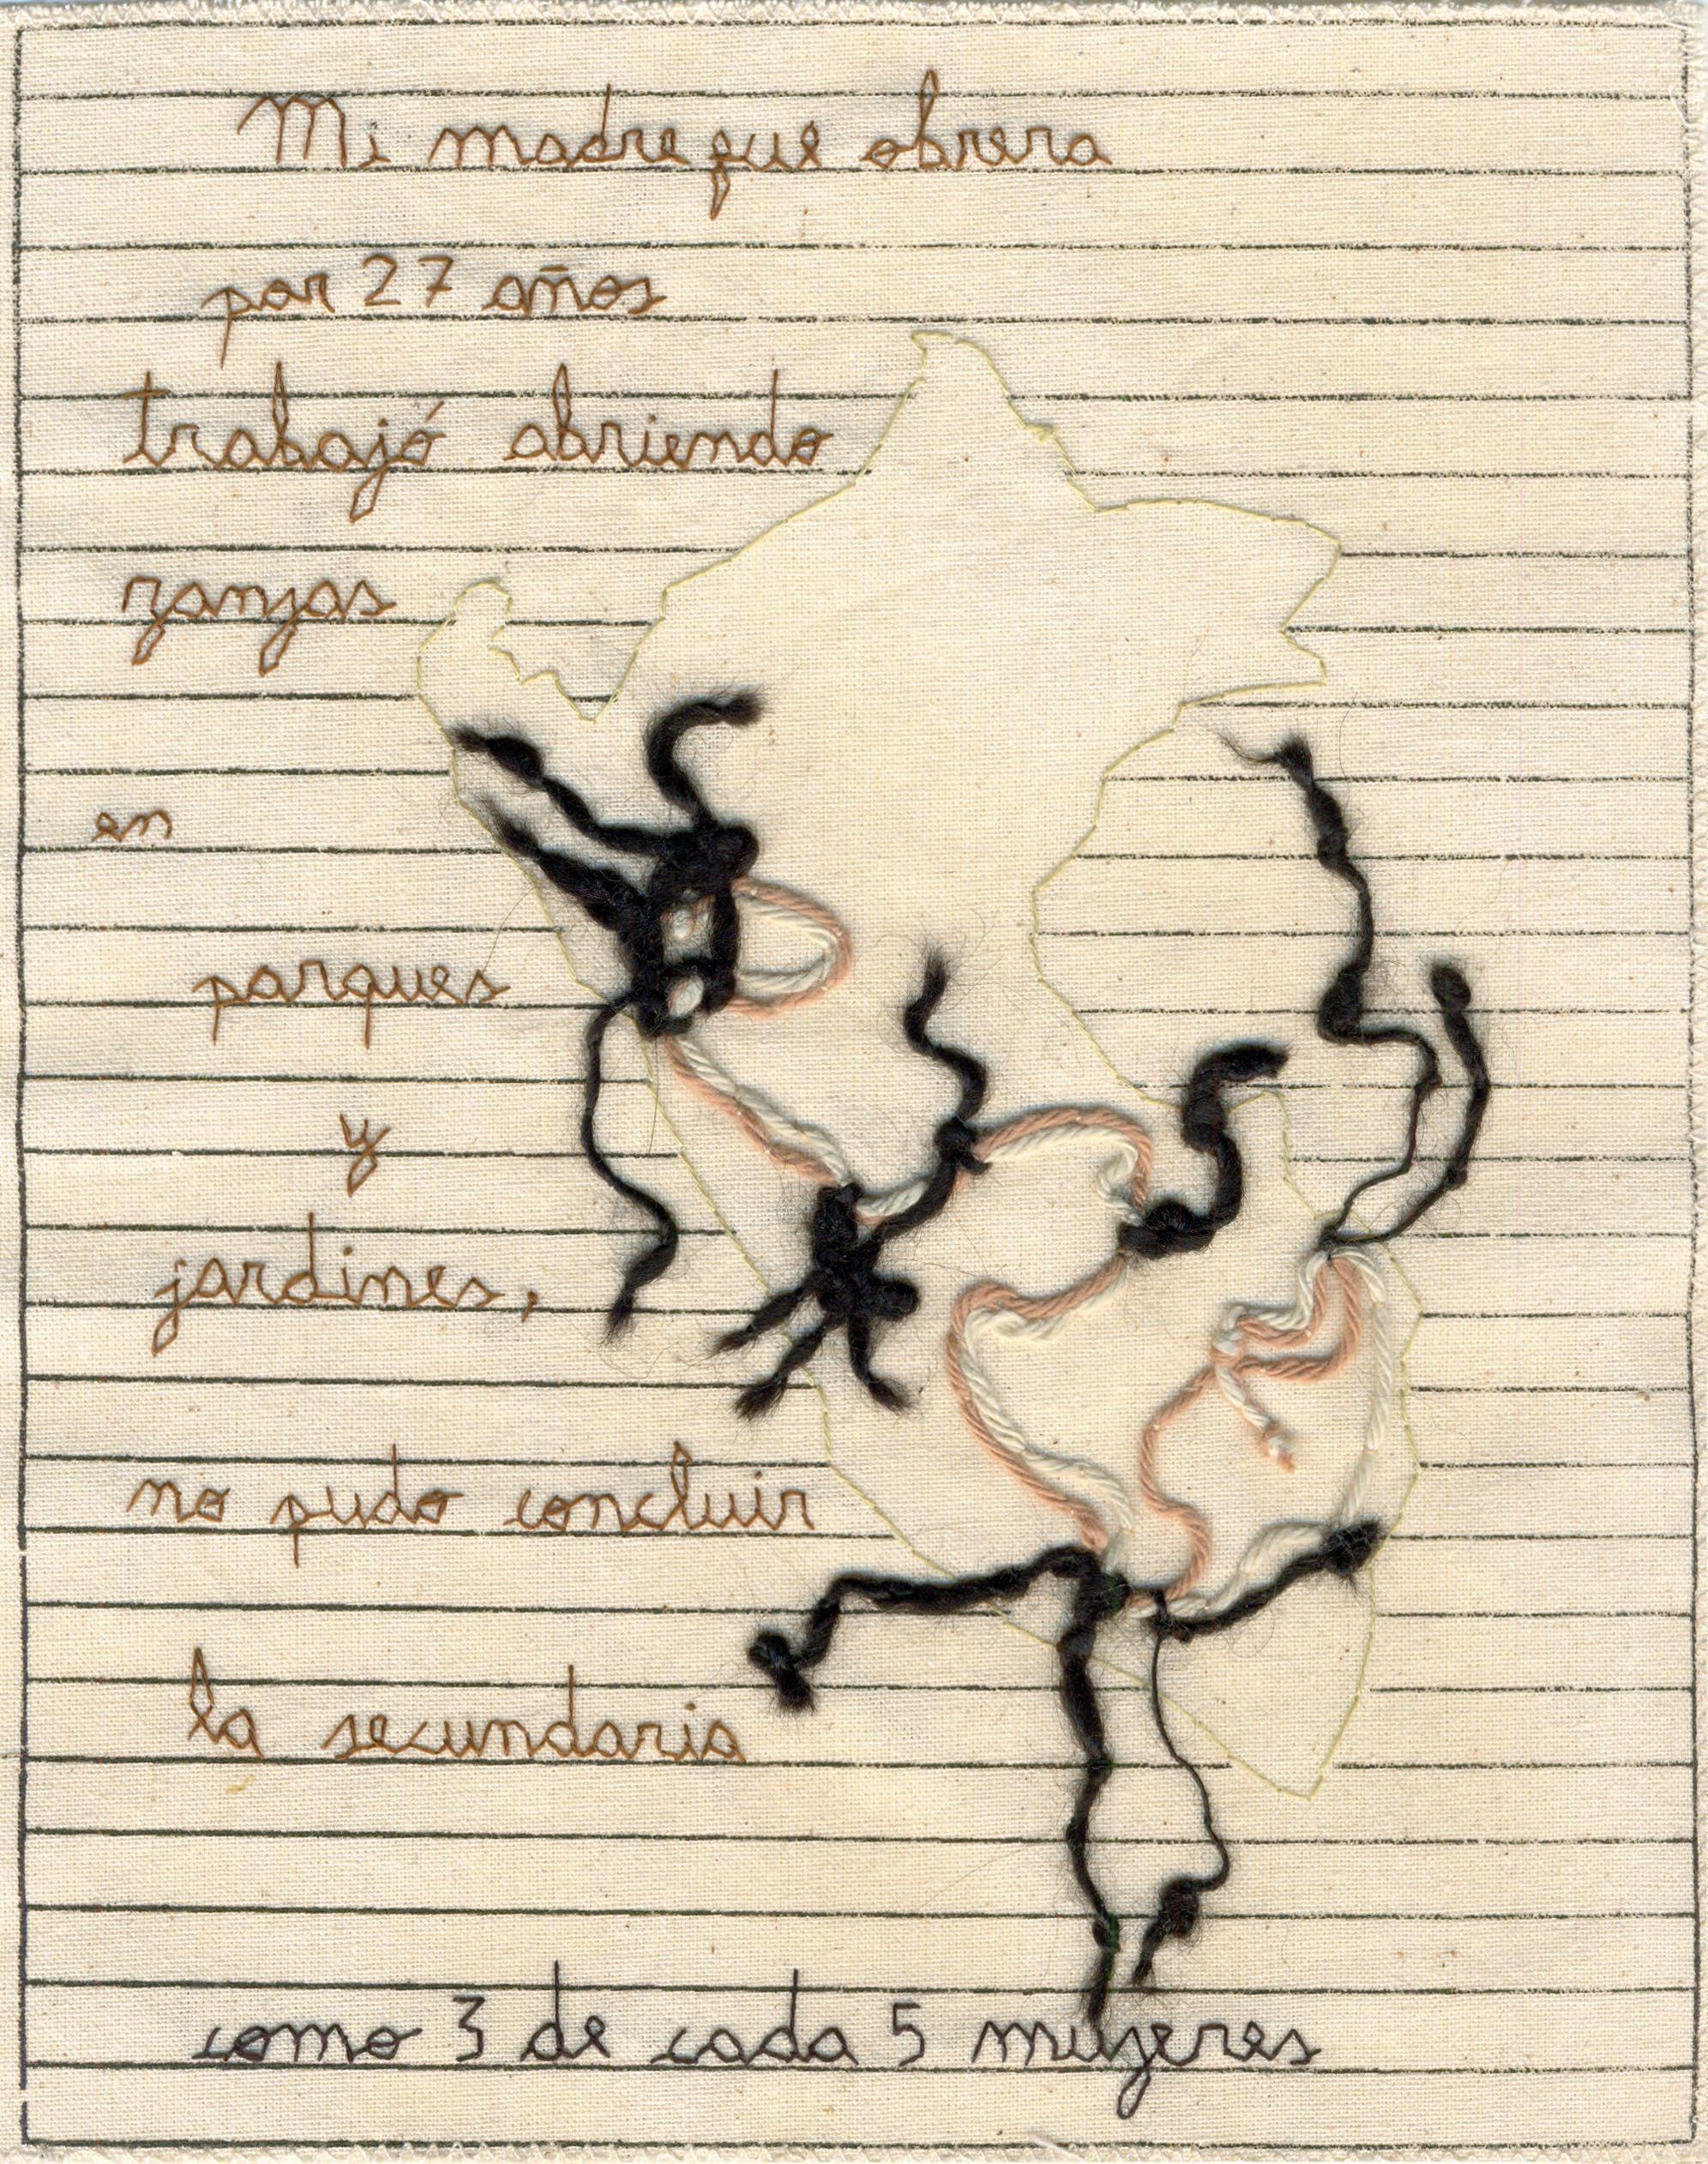 Mi madre fue obrera
por 27 años
trabajó abriendo
zanjas
en
parques
y
jardines,
no pudo concluir
la secundaria
como 3 de cada 5 mujeres